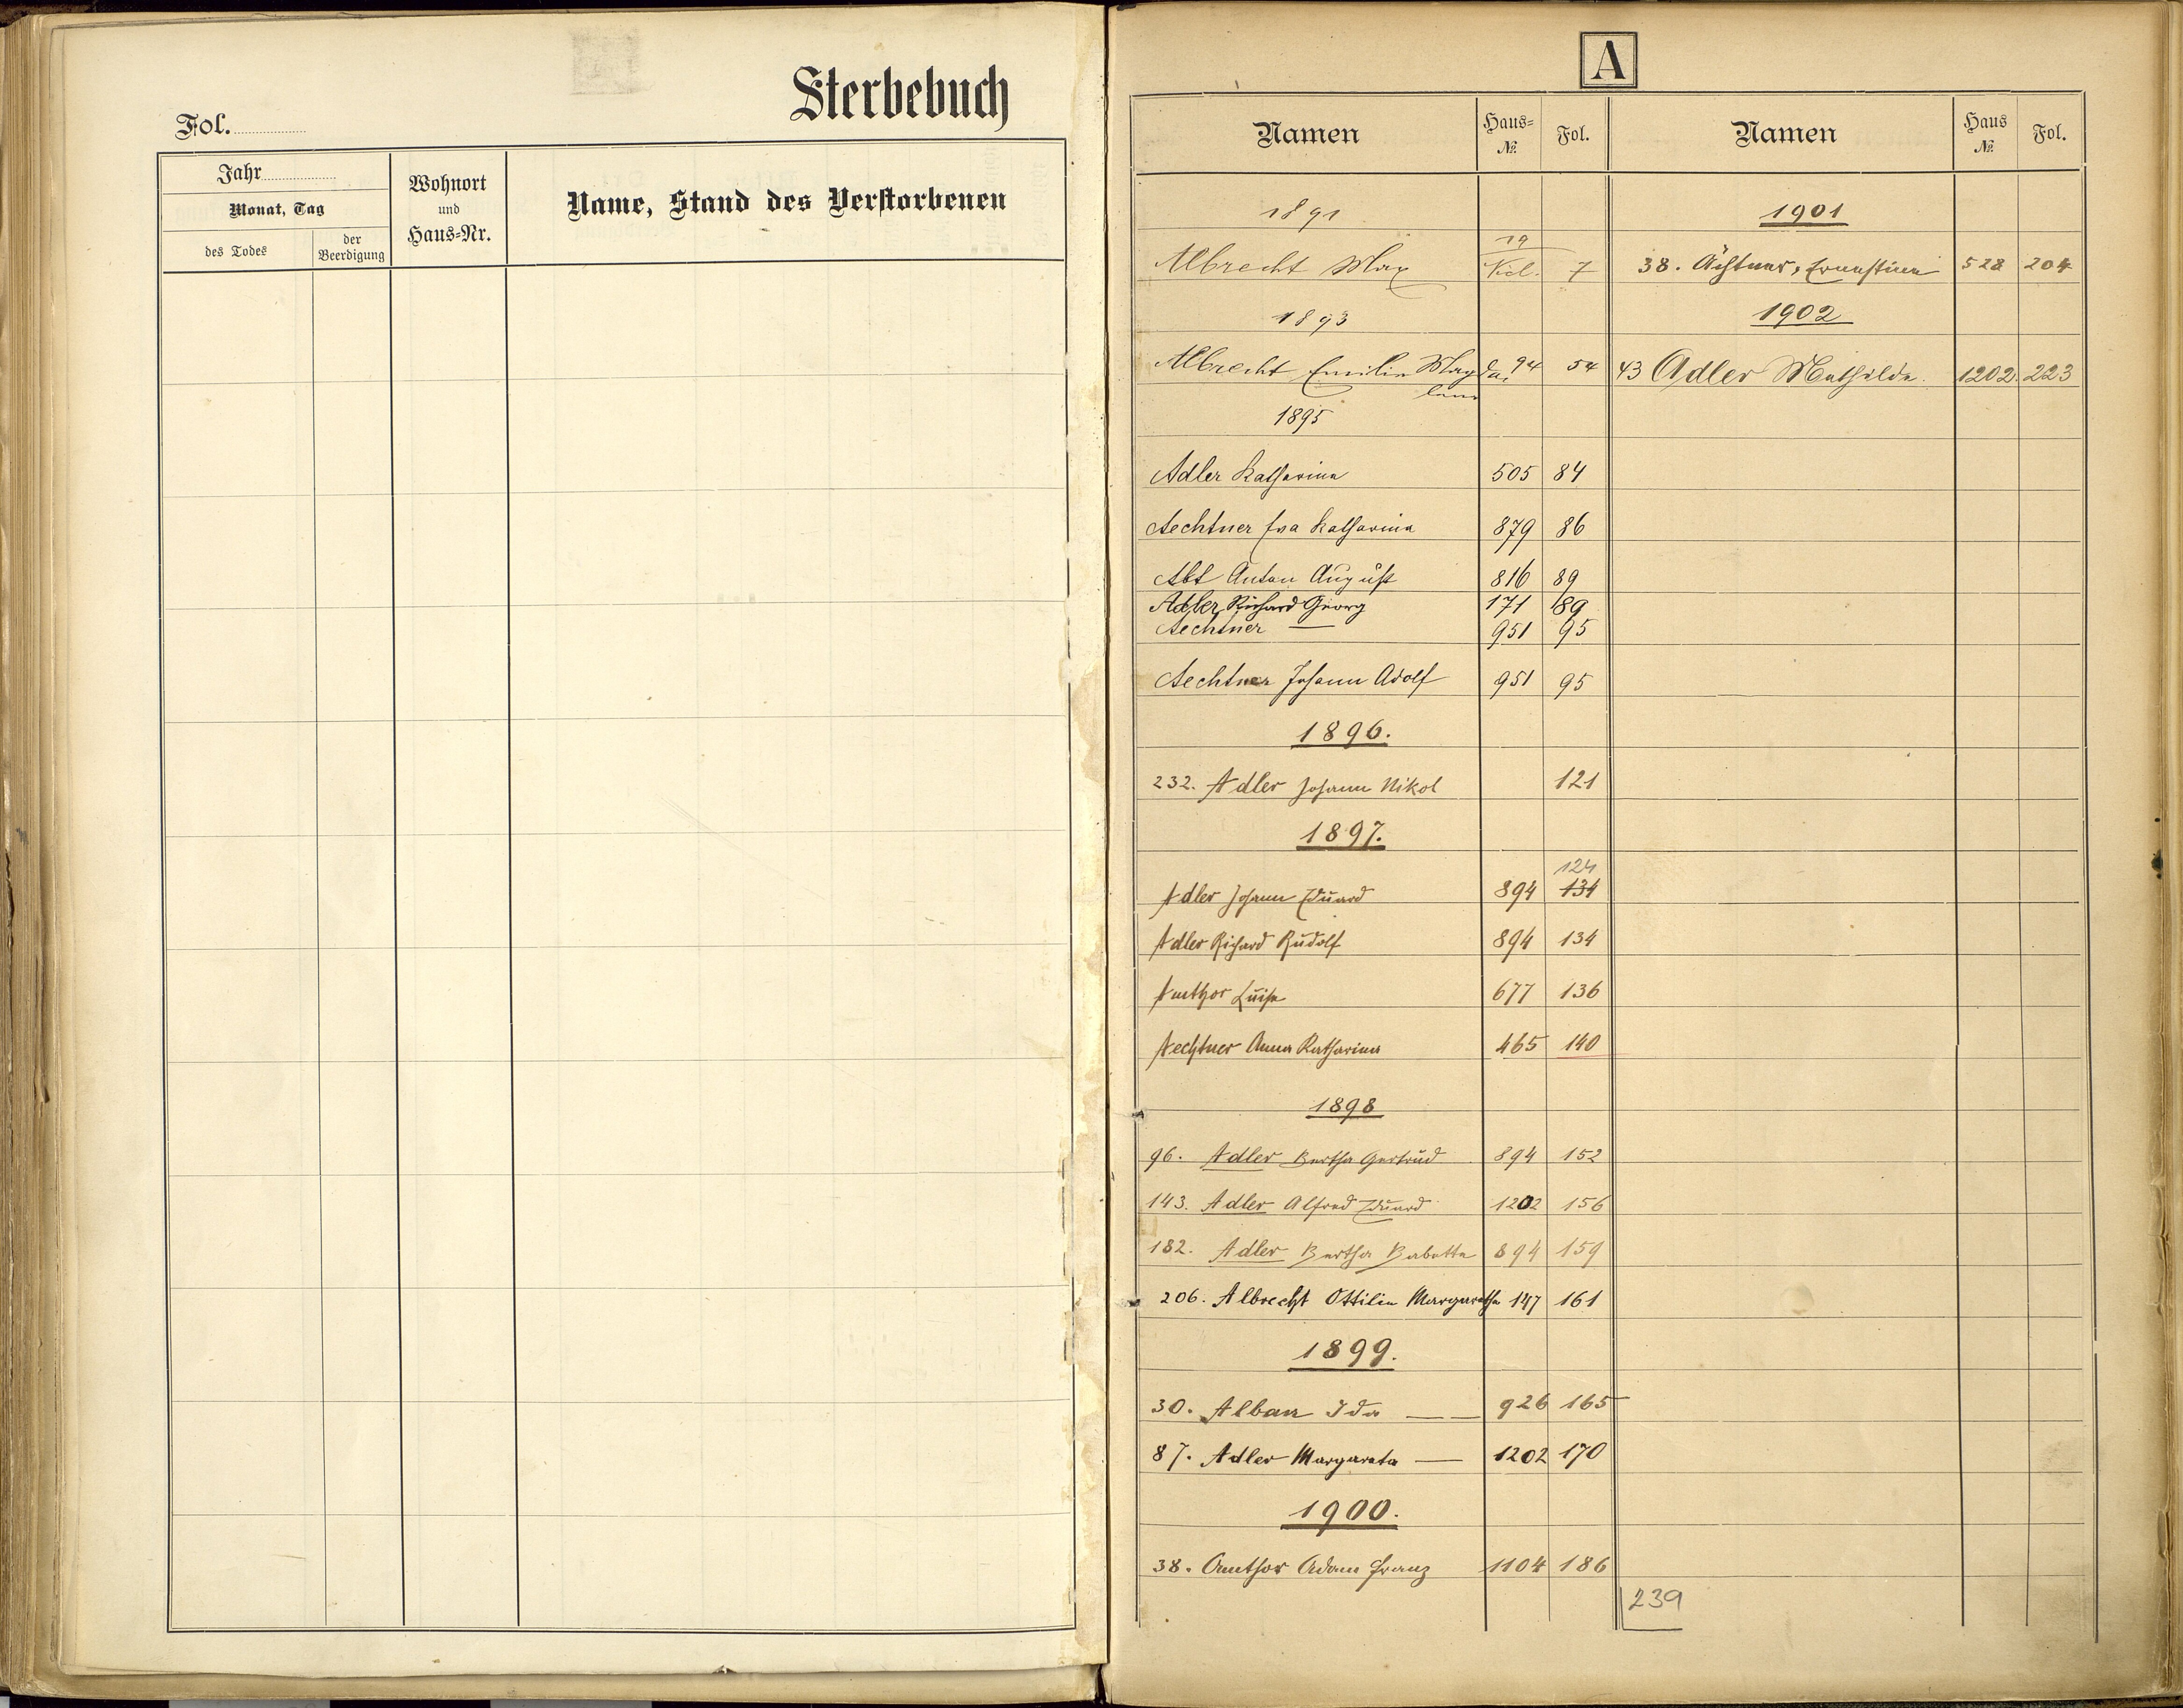 Sterbebuch
Fol.
Jahr
Monat, Tag
des Todes
der Beerdigung
Wohnort
und
Haus-Nr.
Name, Stand des Verstorbenen
A
Namen Haus-№ Fol.
1891
Albrecht Max 19 7
1893
Albrecht Emilie Magda- 94 54
lena
1895
Adler Katharina 505 84
Aechtner Eva Katharina 879 86
Abt Anton August 816 89
Adler Richard Georg 171 89
Aechtner — 951 95
Aechtner Johann Adolf 951 95
1896.
232. Adler Johann Nikol 121
1897.
124
Adler Johann Eduard 894 134
Adler Richard Rudolf 894 134
Amthor Luise 677 136
Aechtner Anna Katharina 465 140
1898
96. Adler Bertha Gertrud 894 152
143. Adler Alfred Eduard 1202 156
182. Adler Bertha Babette 894 159
206. Albrecht Ottilie Margaretha 147 161
1899.
30. Alban Ida — 926 165
87. Adler Margareta — 1202 170
1900.
38. Amthor Adam Franz 1104 186
Namen Haus № Fol.
1901
38. Ächtner, Ernestine 528 204
1902
43 Adler Mathilde. 1202. 223
239